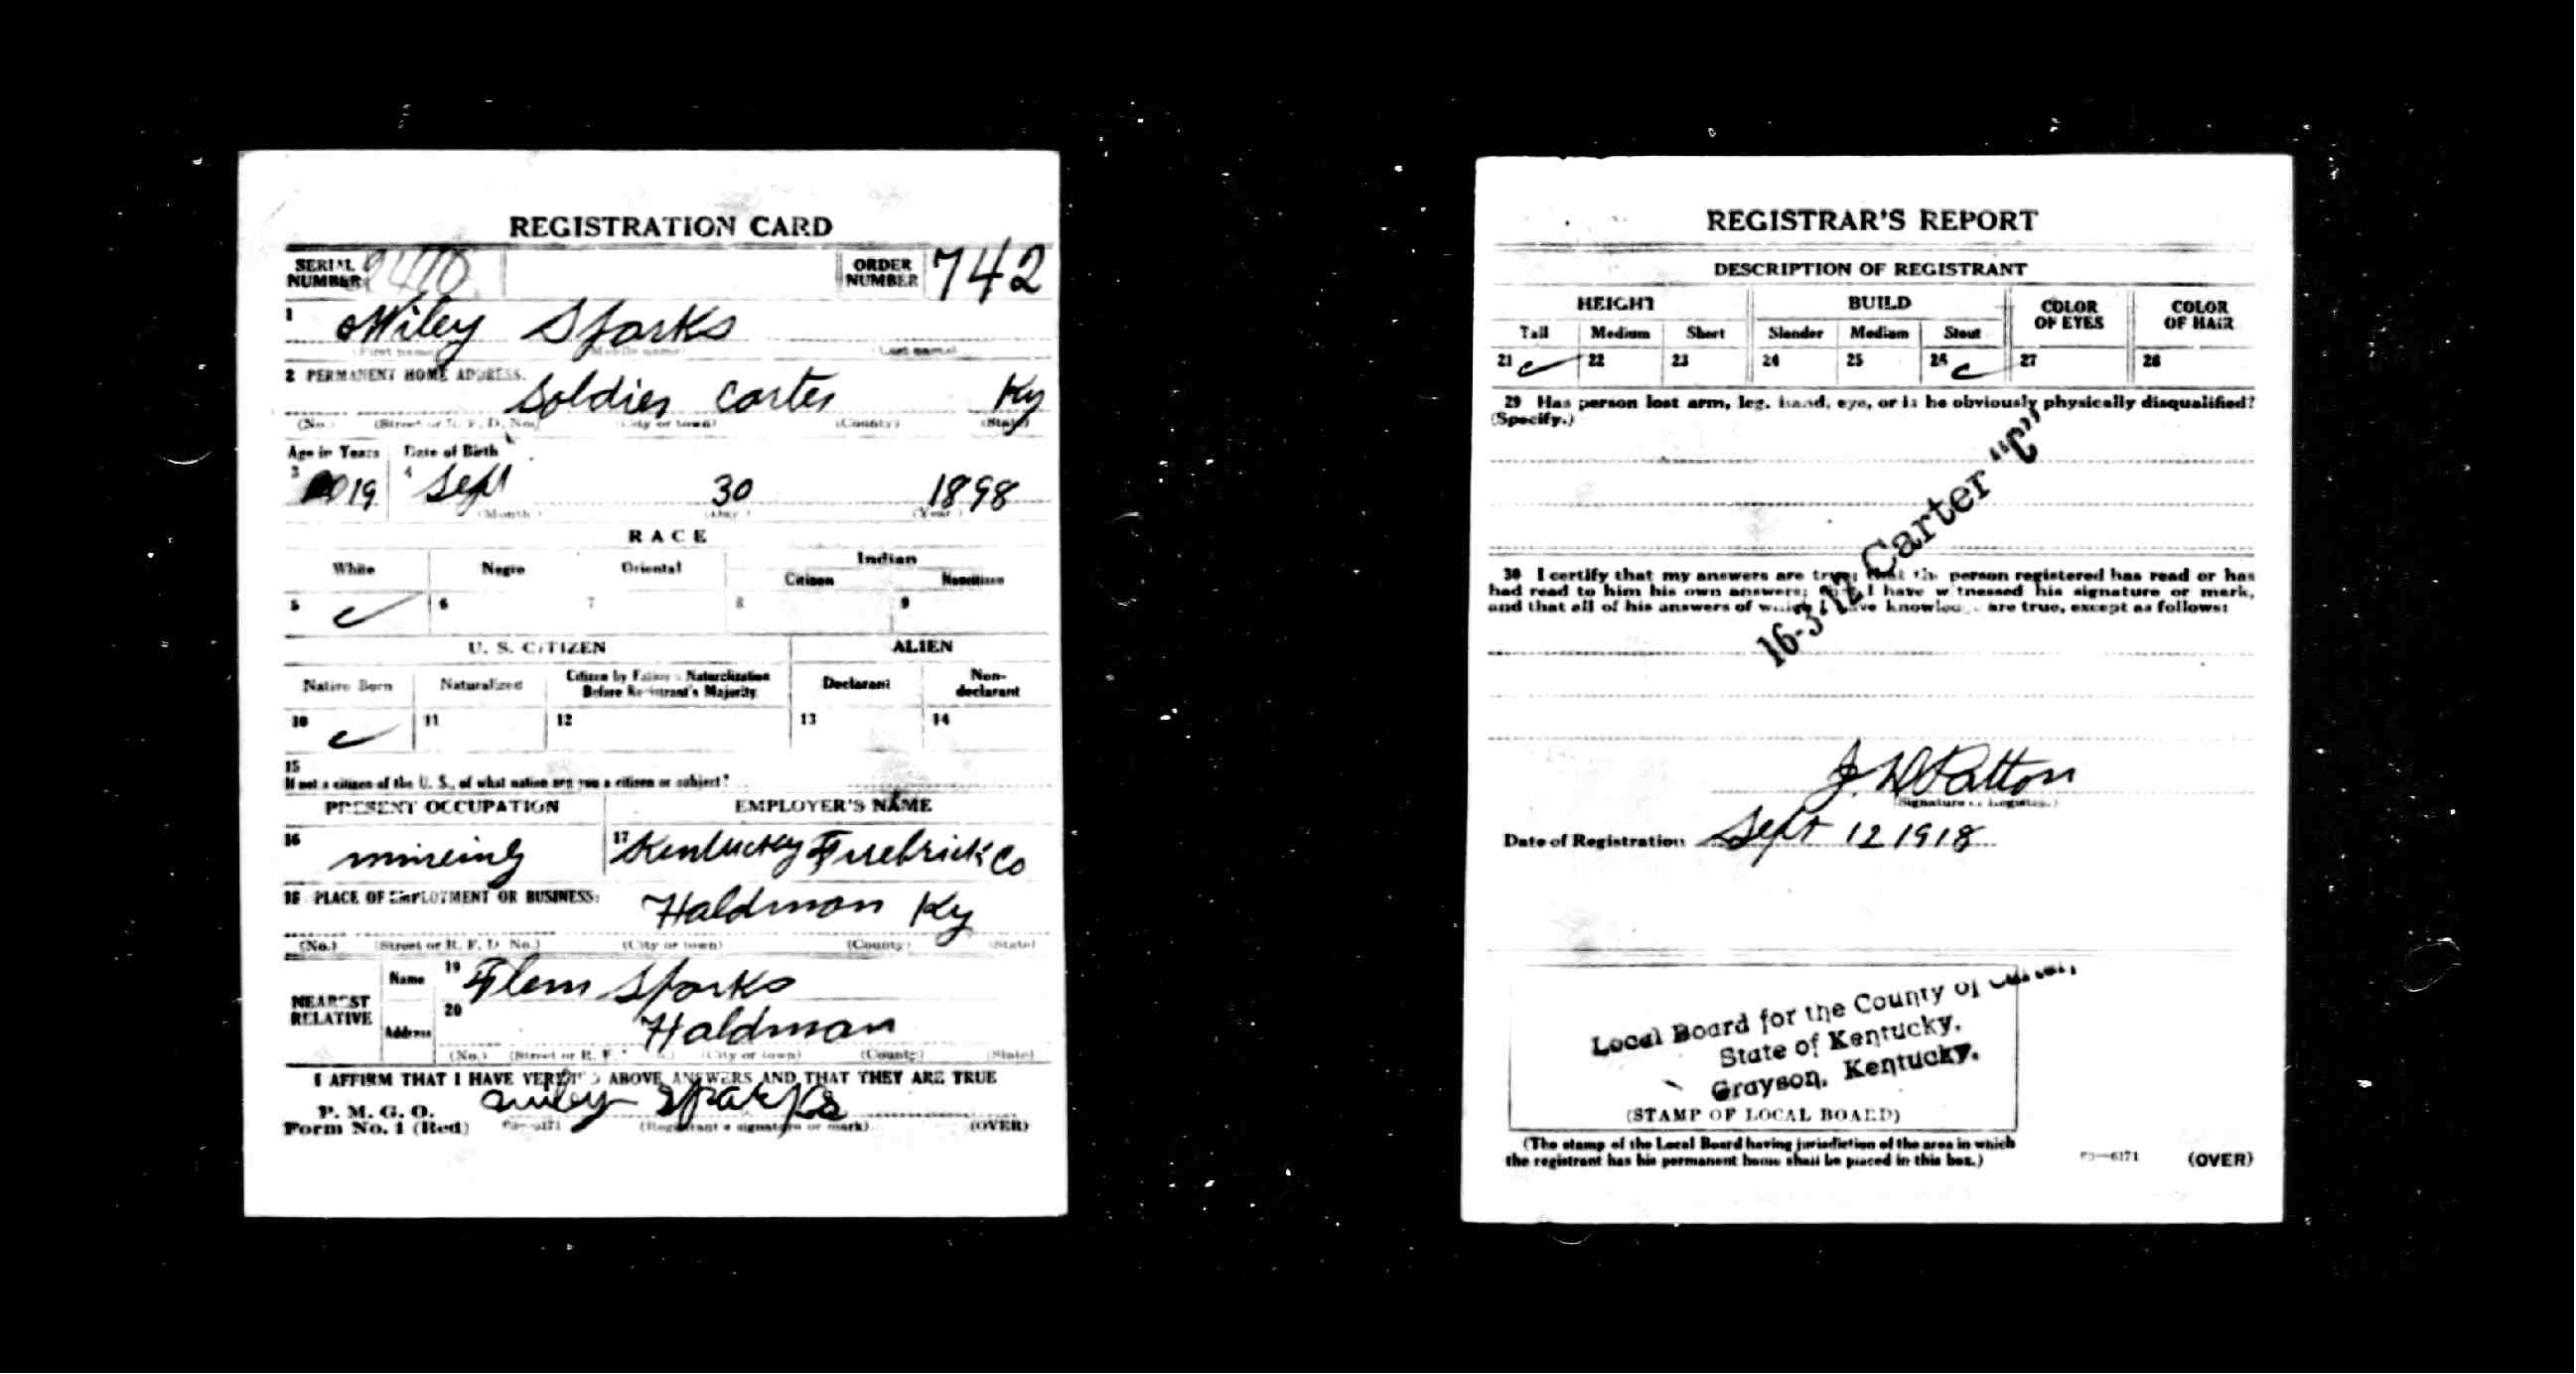 REGISTRATION CARD
SERIAL NUMBER 2470 ORDER NUMBER 742
1 Wiley Sparks
(First name) (Middle name) (Last name)
2 PERMANENT HOME ADDRESS.
Soldier Carter Ky
(No.) (Street or R. F. D. No.) (City or town) (County) (State)
Age in Years Date of Birth
3 19 4 Sept 30 1898
(Month) (Day) (Year)
RACE
White Negro Oriental Indian
Citizen Noncitizen
5 6 7 8 9
U. S. CITIZEN ALIEN
Native Born Naturalized Citizen by Father's Naturalization Before Registrant's Majority Declarant Non-declarant
10 11 12 13 14
15
If not a citizen of the U. S., of what nation are you a citizen or subject?
PRESENT OCCUPATION EMPLOYER'S NAME
16 mineing 17 Kentucky Firebrick Co
18 PLACE OF EMPLOYMENT OR BUSINESS:
Haldman Ky
(No.) (Street or R. F. D. No.) (City or town) (County) (State)
NEAREST RELATIVE
Name 19 Flem Sparks
Address 20 Haldman
(No.) (Street or R. F. D. No.) (City or town) (County) (State)
I AFFIRM THAT I HAVE VERIFIED ABOVE ANSWERS AND THAT THEY ARE TRUE
P. M. G. O.
Form No. 1 (Red) Sparks
(Registrant's signature or mark) (OVER)
REGISTRAR'S REPORT
DESCRIPTION OF REGISTRANT
HEIGHT BUILD COLOR OF EYES COLOR OF HAIR
Tall Medium Short Slender Medium Stout
21 22 23 24 25 26 27 28
29 Has person lost arm, leg, hand, eye, or is he obviously physically disqualified?
(Specify.)
16-3-12 Carter "C"
30 I certify that my answers are true; that the person registered has read or has
had read to him his own answers; that I have witnessed his signature or mark,
and that all of his answers of which I have knowledge are true, except as follows:
J. D. Patton
(Signature of Registrar)
Date of Registration Sept 12 1918
Local Board for the County of Carter,
State of Kentucky.
Grayson, Kentucky.
(STAMP OF LOCAL BOARD)
(The stamp of the Local Board having jurisdiction of the area in which
the registrant has his permanent home shall be placed in this box.)
03—6171 (OVER)